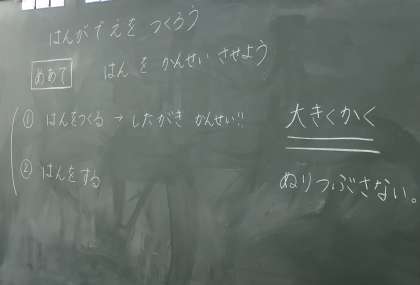 はんがで えを つくろう
めあて はん を かんせい させよう
① はんをつくる → したがき かんせい!!
② はんをする
大きくかく
ぬりつぶさない。